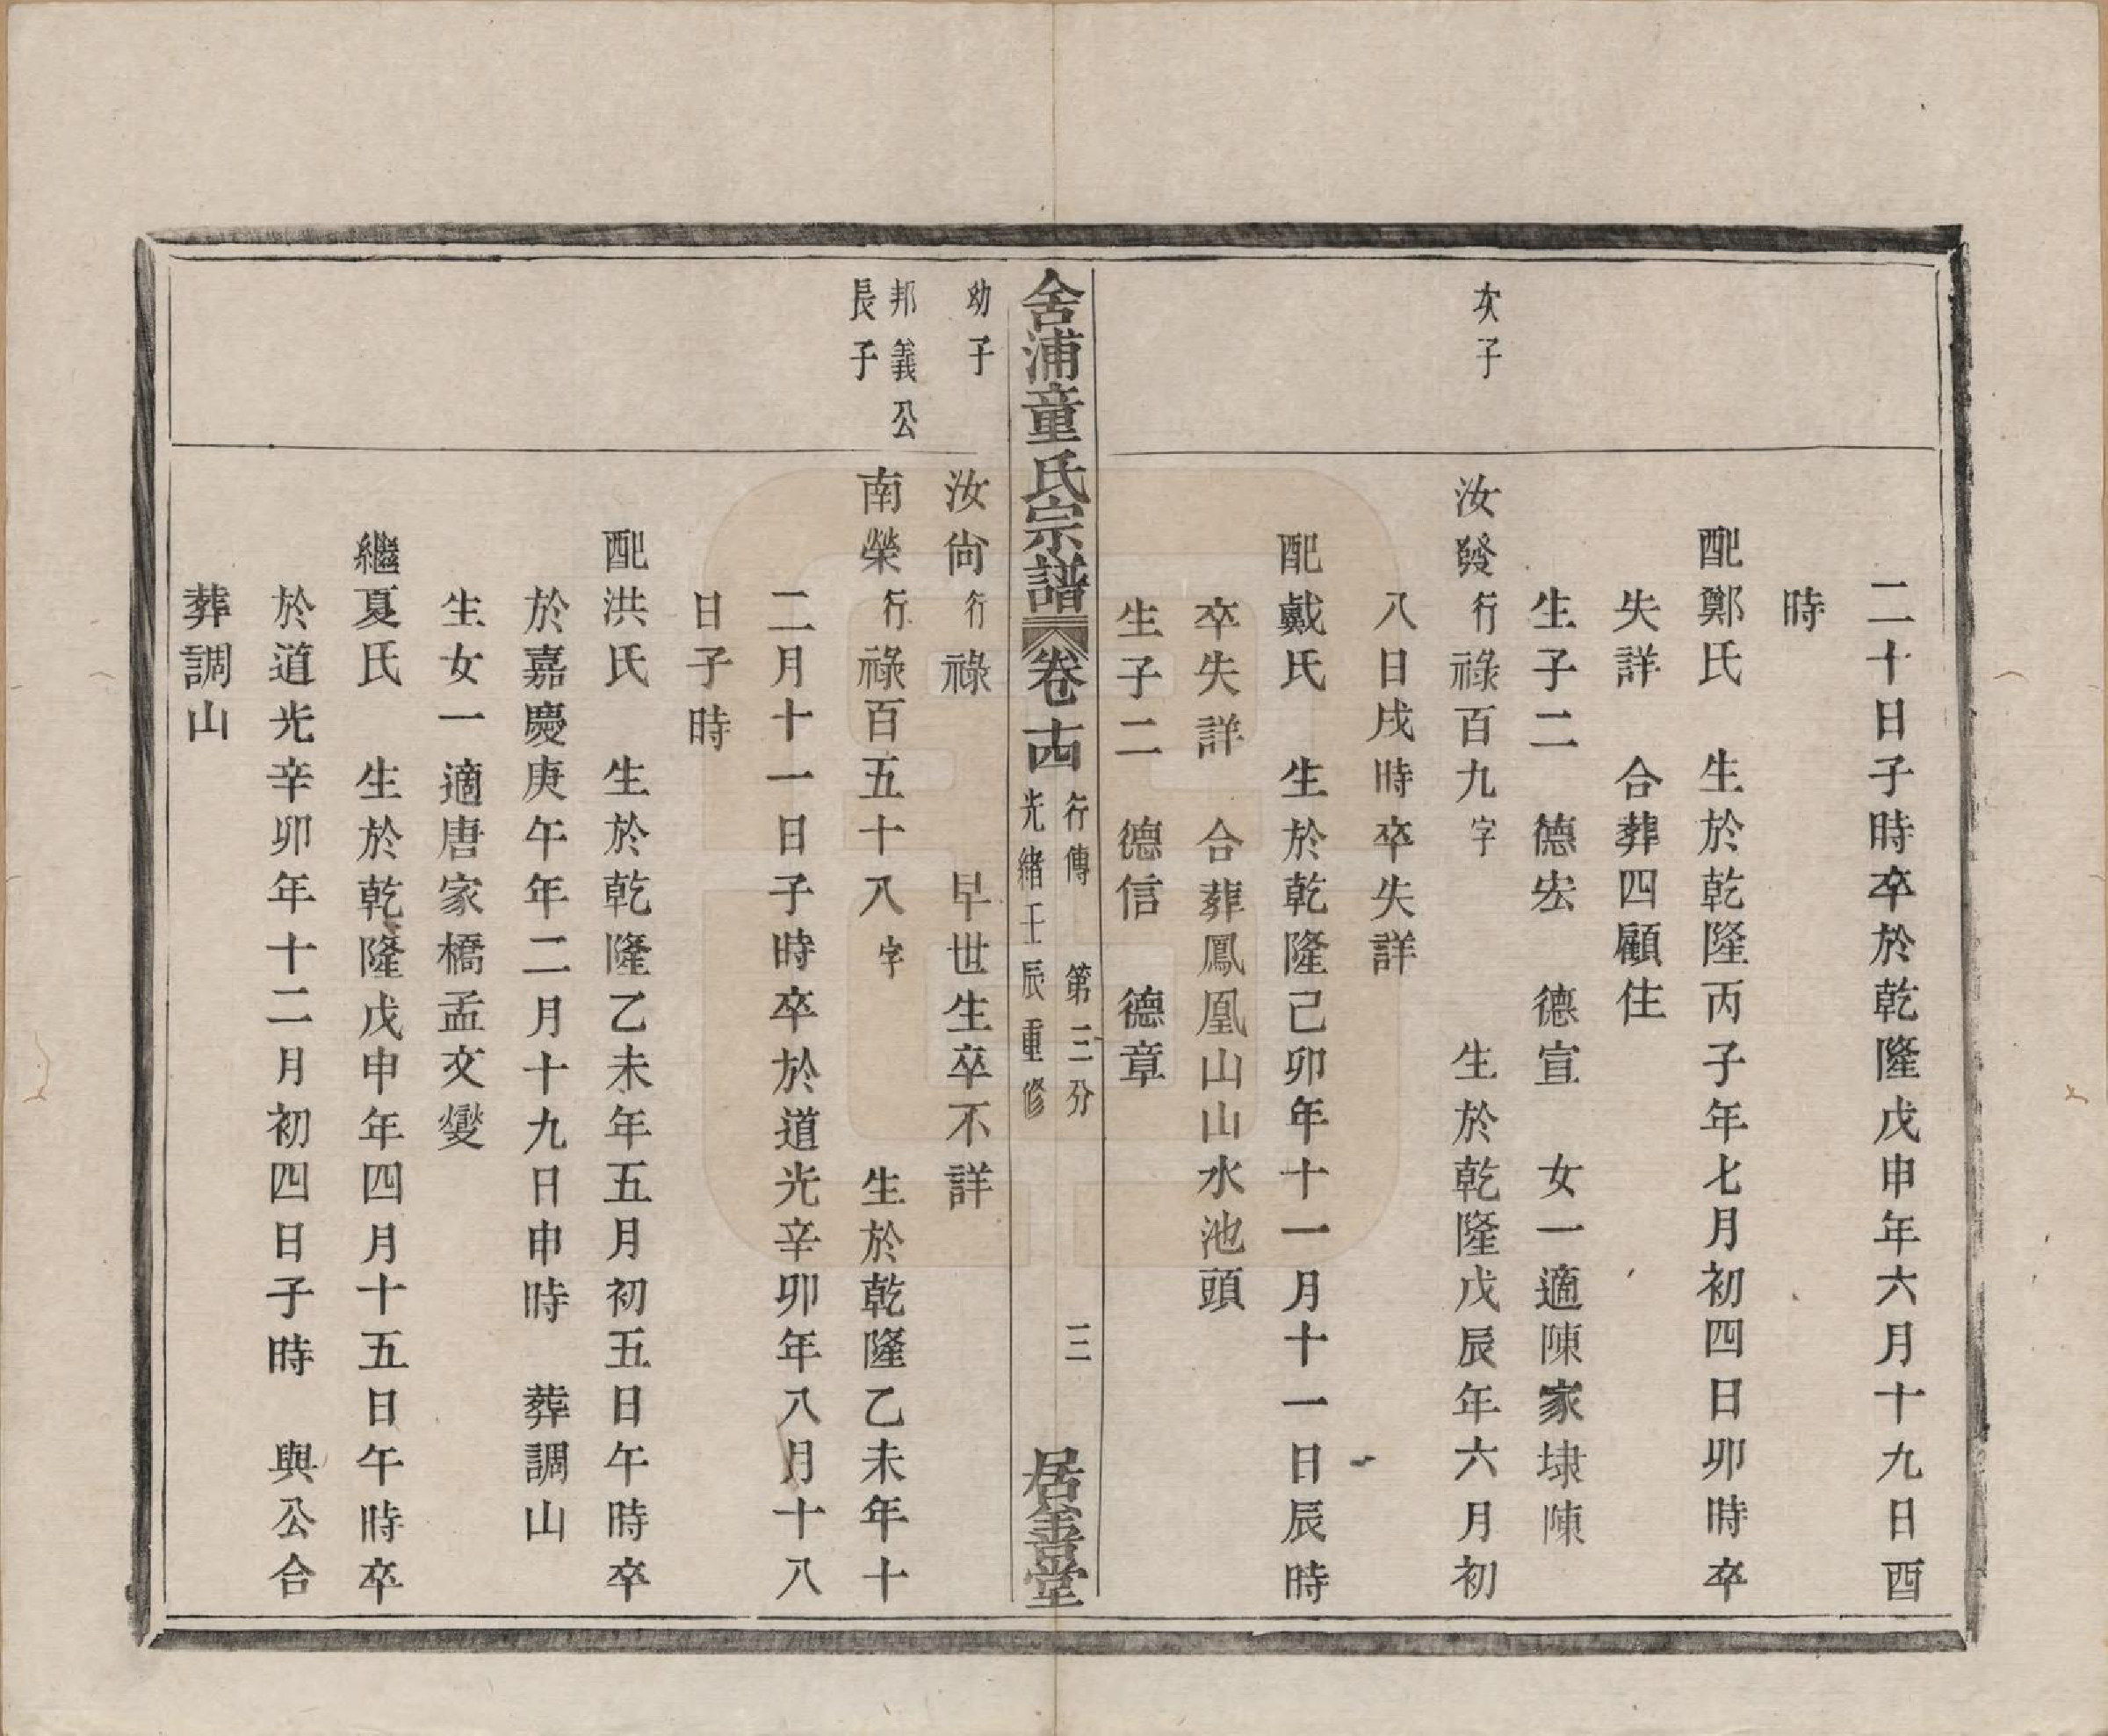 二十日子時卒於乾隆戊申年六月十九日酉
時
配鄭氏　生於乾隆丙子年七月初四日卯時卒
失詳　合葬四顧住
生子二　德宏　德宣　女一適陳家埭陳
次子
汝發行祿百九字　生於乾隆戊辰年六月初
八日戌時卒失詳
配戴氏　生於乾隆己卯年十一月十一日辰時
卒失詳　合葬鳳凰山山水池頭
生子二　德信　德章
舍浦童氏宗譜　卷十四　行傳　第三分　三
光緒壬辰重修
居善堂
幼子
汝尙行祿　早世生卒不詳
邦義公
長子
南榮行祿百五十八字　生於乾隆乙未年十
二月十一日子時卒於道光辛卯年八月十八
日子時
配洪氏　生於乾隆乙未年五月初五日午時卒
於嘉慶庚午年二月十九日申時　葬調山
生女一適唐家橋孟文燮
繼夏氏　生於乾隆戊申年四月十五日午時卒
於道光辛卯年十二月初四日子時　與公合
葬調山